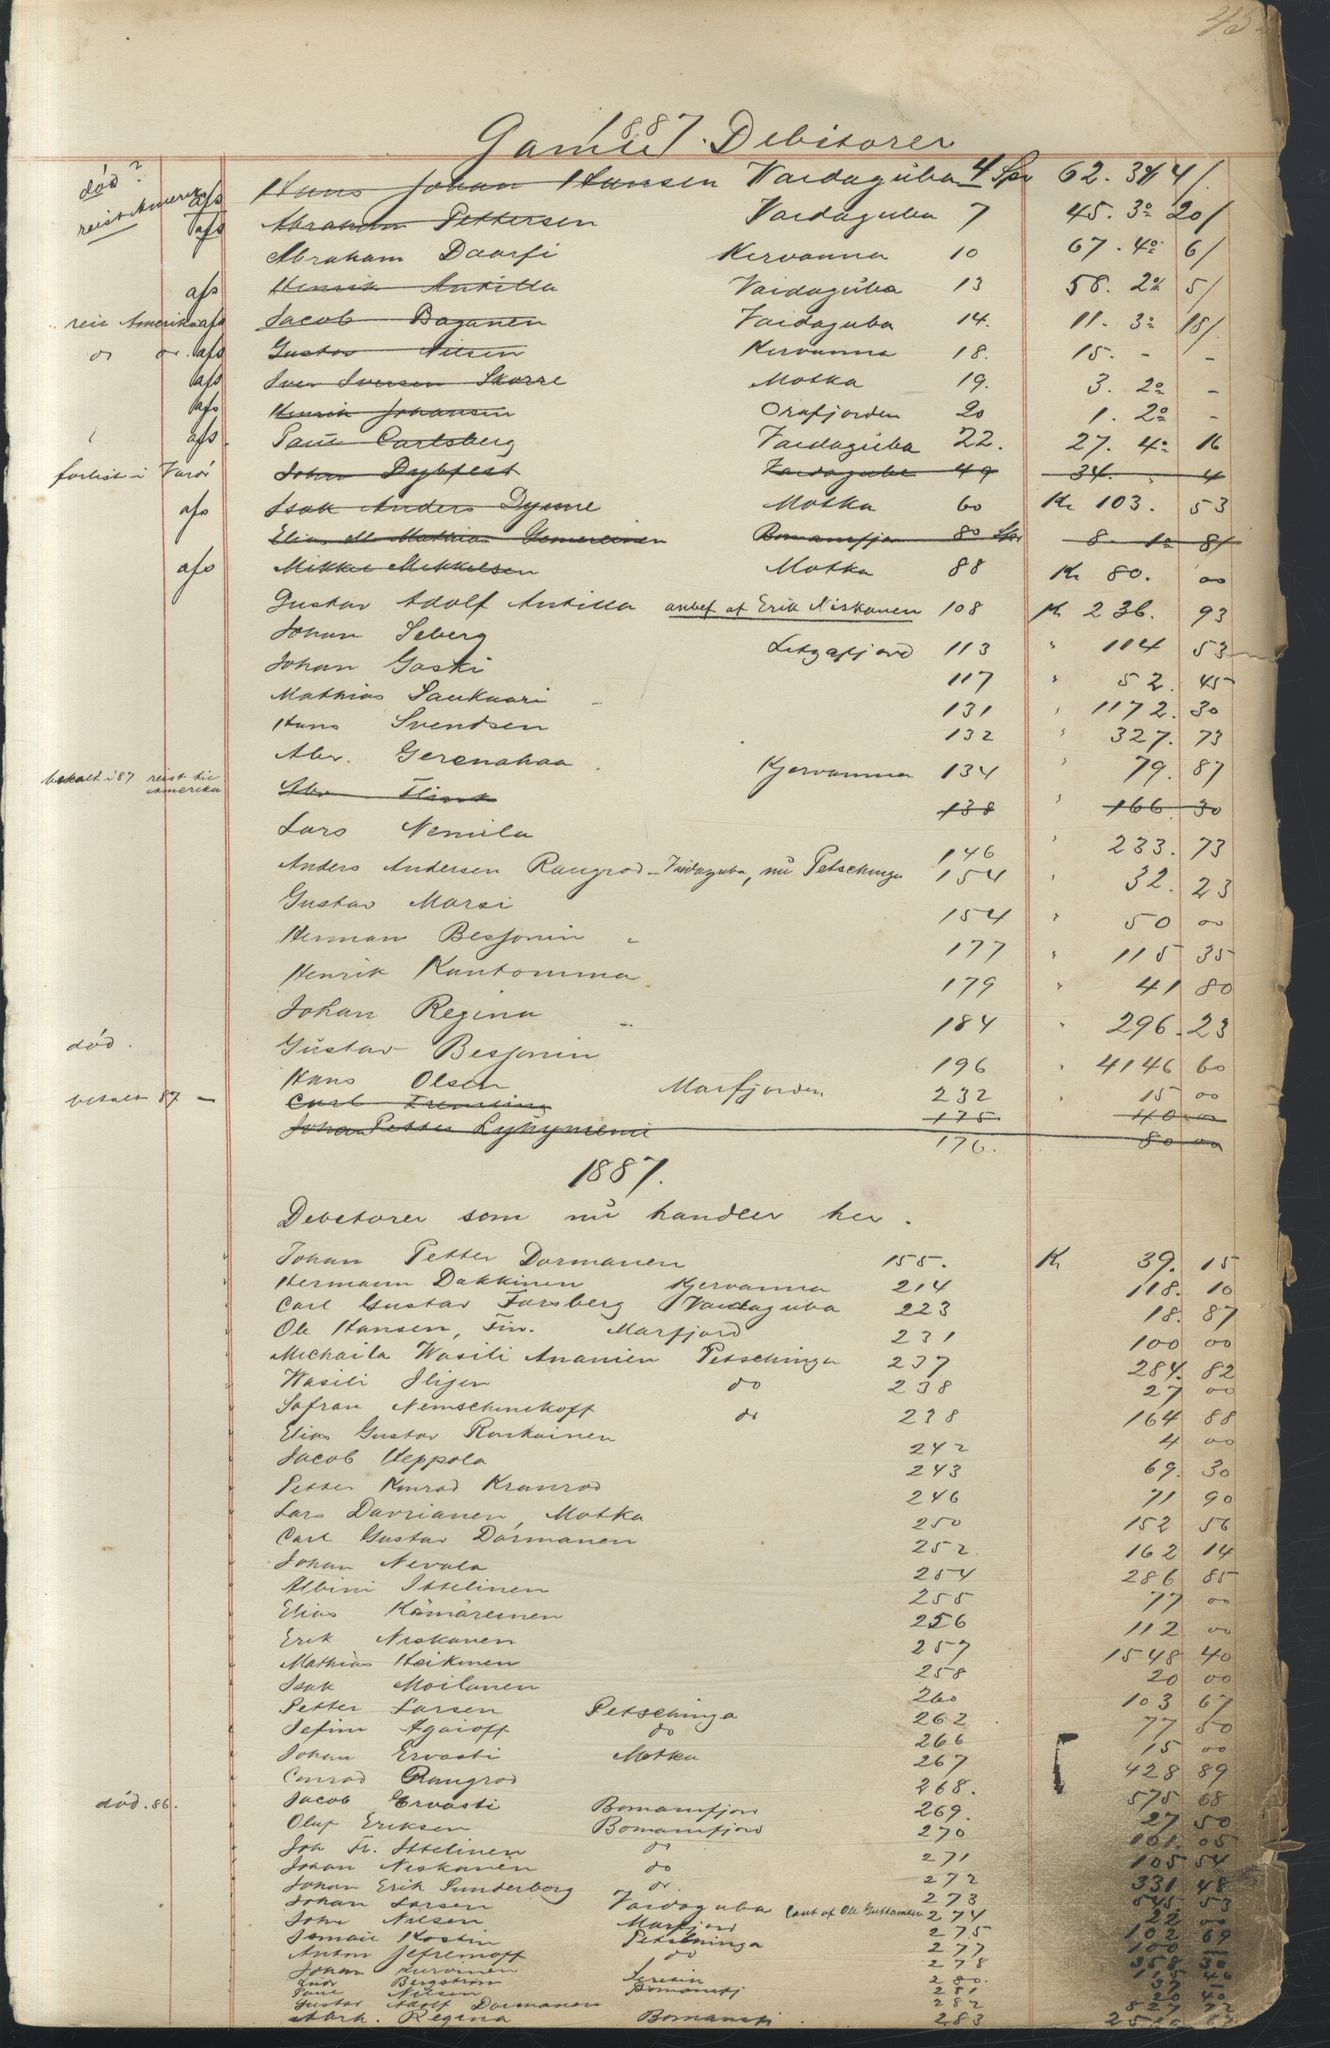 45
1887.
Gamle Debitorer
død? afs Hans Johan Hansen Vaidaguba 4 Spr 62. 3 4/
reist Amerika afs Abraham Pettersen Vaidaguba 7 45. 3 20/
Abraham Daarfi Kervanna 10 67. 4 6/
afs Henrik Antilla Vaidaguba 13 58. 2 5/
reis Amerika afs Jacob Baganen Vaidaguba 14. 11. 3 18/
do do. afs Gustav Nilsen Kervanna 18. 15. - -
afs Iver Iversen Skorre Motka 19. 3. 2 -
afs Henrik Johansen Orafjorden 20 1. 2 -
afs. Paul Carlsberg Vaidaguba 22. 27. 4 16
forlist i Vardö Johan Dybfest Vaidaguba 49 34. . 4
afs Isak Anders Dymne Motka 60 Kr 103. 53
Elias Mathias Bomansfjor 80 Spr 8. 1 8/
afs Mikkel Mikkelsen Motka 88 Kr 80. 00
Gustav Adolf Antilla anbef af Erik Niskanen 108 Kr 236. 93
Johan Seberg Litzafjord 113 " 114 53
Johan Gaski 117 " 52. 45
Mathias Saukuari 131 " 1172. 30
Hans Svendsen 132 " 327. 73
Abr. Gerenahaa Kjervanna 134 " 79. 87
betalt i 87 reist til Amerika Abr Flink 138 " 166 30
Lars Nemila 146 " 233. 73
Anders Andersen Raugrod - Vaidaguba, nu Petschinga 154 " 32. 23
Gustav Marsi 154 " 50 00
Herman Besjonin 177 " 115 35
Henrik Kantomma 179 " 41 80
Johan Regina 184 " 296. 23
død. Gustav Besjonin 196 " 4146 60
Hans Olsen Marfjorden 232 " 15 00
betalt 87 - Carl Fremling 175 40 00
Johan Petter Lyhynieme 176. 80 00
1887.
Debetorer som nu handler her.
Johan Petter Dormanen 155. Kr 39. 15
Hermann Dakkinen Kjervanna 214 118. 10
Carl Gustav Forsberg Vaidaguba 223 18. 87
Ole Hansen, Fin. Marfjord 231 100 00
Michaila Wasili Ananien Petschinga 237 284. 82
Wasili Ilijen do 238 27 00
Safran Nemschinikoff do 238 164 88
Elias Gustav Ronkainen 242 4 00
Jacob Heppola 243 69. 30
Petter Konrad Kranrod 246 71 90
Lars Davrianen, Motka 250 152 56
Carl Gustav Dormanen 252. 162 14
Johan Nevala 254 286 85
Albini Ittelinen 255 77 00
Elias Kämäreinen 256 112 00
Erik Niskanen 257 1548 40
Mathias Heikinen 258 20 00
Isak Moilanen 260 103 67
Petter Larsen Petschinga 262 77 50
Jefim Agaioff do 266 15 00
Johan Ervasti Motka 267 428 89
Conrad Raugrod 268. 575 68
død. 86. Jacob Ervasti Bomansfjor 269. 27 50
Oluf Eriksen Bomansfjord 270 101. 05
Joh Fr. Ittelinen do 271 105 54
Johan Niskanen do 272 331 48
Johan Erik Sunderborg do. 273 545. 53
Johan Larsen Vaidaguba Caut af Ole Guttormsen 274 22
John Nilsen Marfjord 275 102 69
Ismail Kostin Petschinga 277
Anton Jefremoff do 278
Johan Kurvinen 280.
Bergstrøm 281
Paul Nilsen Bomansfj 282
Gustav Adolf Dormanen
Abrh. Regina Bomansfj 283